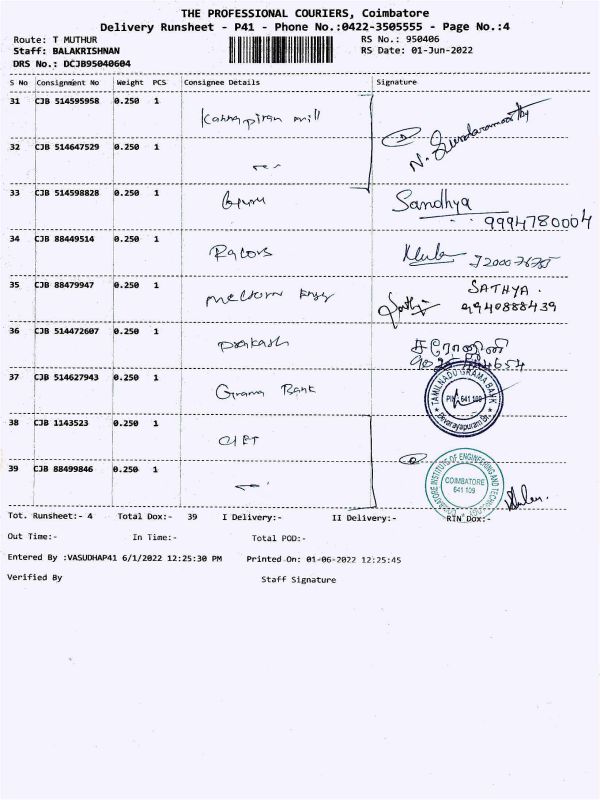 THE PROFESSIONAL COURIERS, Coimbatore
Delivery Runsheet - P41 - Phone No.:0422-3505555 - Page No.:4
Route: T MUTHUR RS No.: 950406
Staff: BALAKRISHNAN RS Date: 01-Jun-2022
DRS No.: DCJB95040604
S No Consignment No Weight PCS Consignee Details Signature
31 CJB 514595958 0.250 1 mill
32 CJB 514647529 0.250 1 N. Sundaramoorthy
33 CJB 514598828 0.250 1 Sandhya
9994780004
34 CJB 88449514 0.250 1
35 CJB 88479947 0.250 1 SATHYA.
9940888439
36 CJB 514472607 0.250 1 prakash
37 CJB 514627943 0.250 1 Grama Bank TAMILNADU GRAMA BANK
PIN 641 109
Devarayapuram Br.
38 CJB 1143523 0.250 1 CIET
39 CJB 88499846 0.250 1 COIMBATORE INSTITUTE OF ENGINEERING AND TECHNOLOGY
COIMBATORE
641 109
Tot. Runsheet:- 4 Total Dox:- 39 I Delivery:- II Delivery:- RTN Dox:-
Out Time:- In Time:- Total POD:-
Entered By :VASUDHAP41 6/1/2022 12:25:30 PM Printed On: 01-06-2022 12:25:45
Verified By Staff Signature